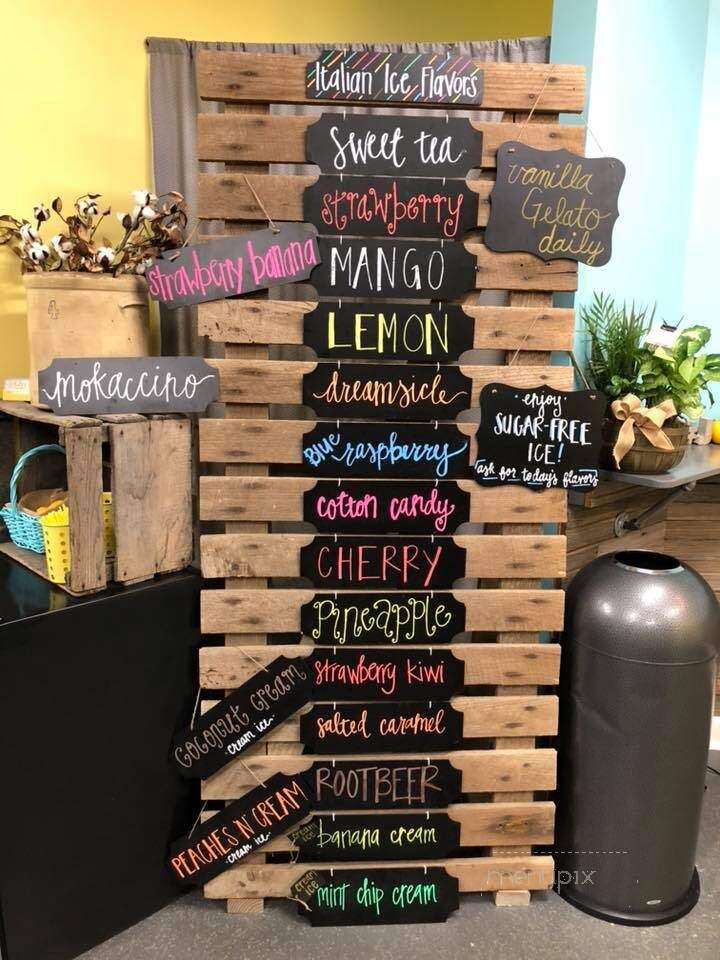 Italian Ice Flavors
sweet tea
vanilla
Gelato
daily
strawberry
strawberry banana
MANGO
LEMON
mokaccino
dreamsicle
enjoy
SUGAR-FREE
ICE!
ask for today's flavors
Blue raspberry
cotton candy
CHERRY
Pineapple
strawberry kiwi
coconut cream
cream ice
salted caramel
ROOTBEER
PEACHES 'N' CREAM
cream ice
cream
ice
banana cream
cream
ice
mint chip cream
4
menupix